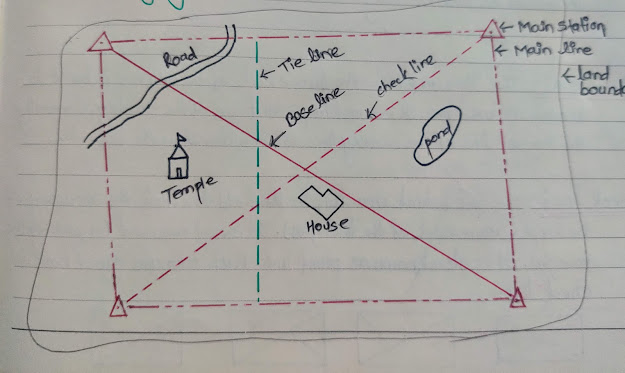 Main station
Main line
Road
Tie line
land
bound
check line
Base line
pond
Temple
House